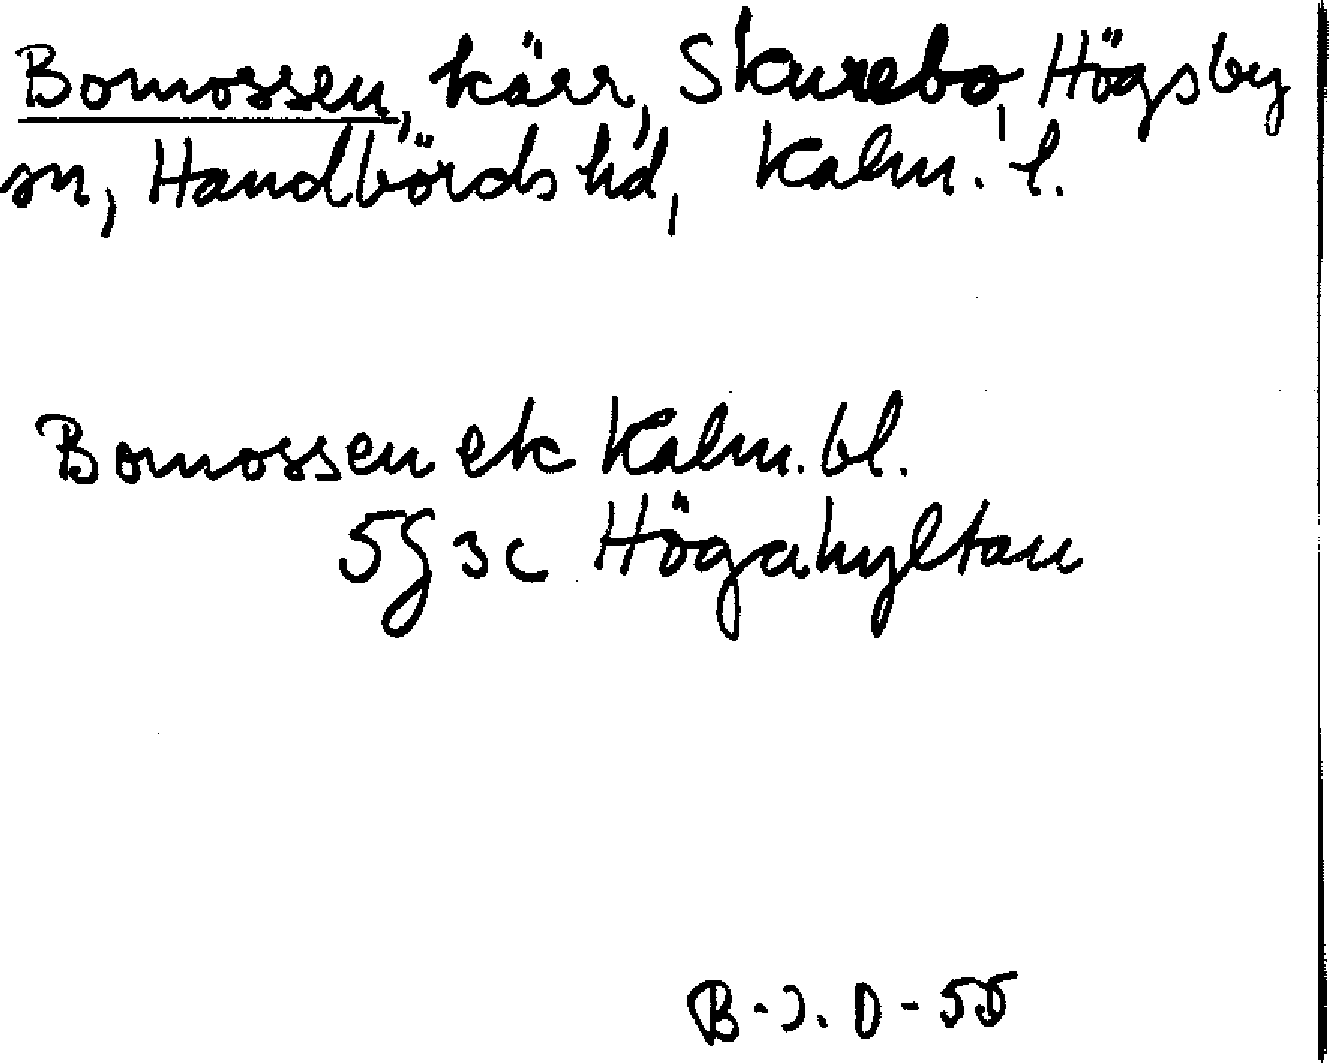 Bomossen, kärr, Skurebo, Högsby
sn, Handbörds hd, Kalm. l.
Bomossen ek Kalm. bl.
5G 3c Högahyltan
B-J. O-55